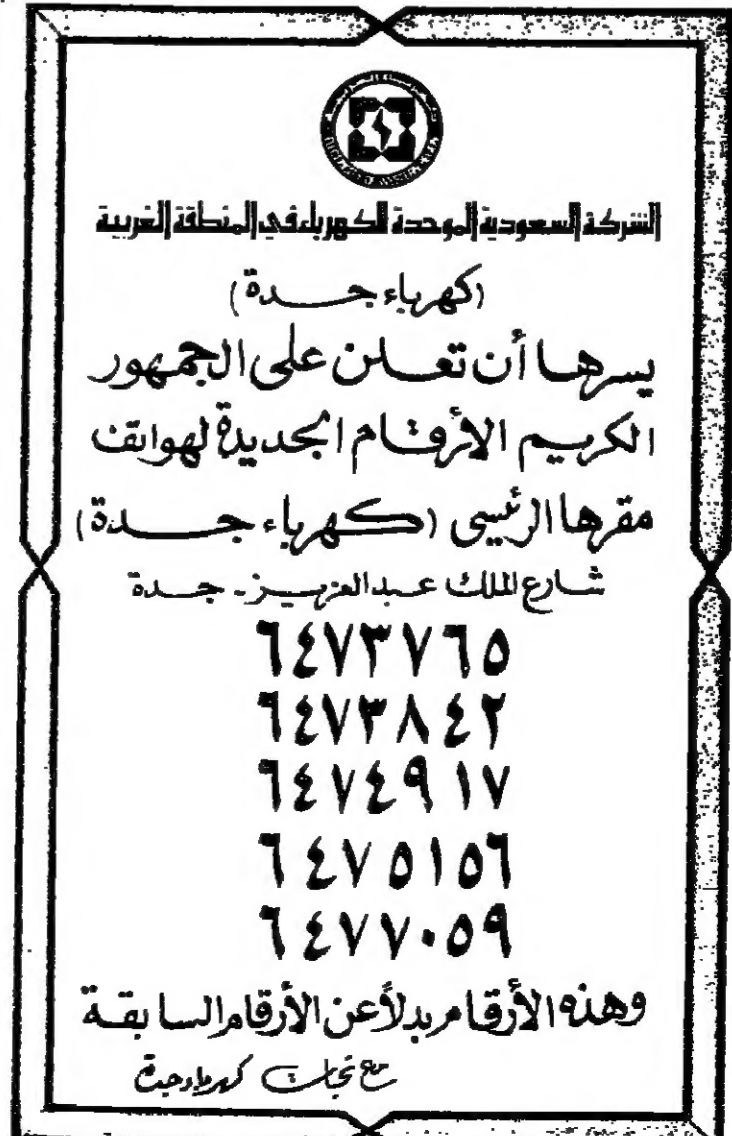 الشركة السعودية الموحدة للكهرباء في المنطقة الغربية
(كهرباء جدة)
يسرها أن تعلن على الجمهور
الكريم الأرقام الجديدة لهواتف
مقرها الرئيسي (كهرباء جدة)
شارع الملك عبدالعزيز - جدة
٦٤٧٣٧٦٥
٦٤٧٣٨٤٢
٦٤٧٤٩١٧
٦٤٧٥١٥٦
٦٤٧٧٠٥٩
وهذه الأرقام بدلاً عن الأرقام السابقة
مع تحيات كهرباء جدة